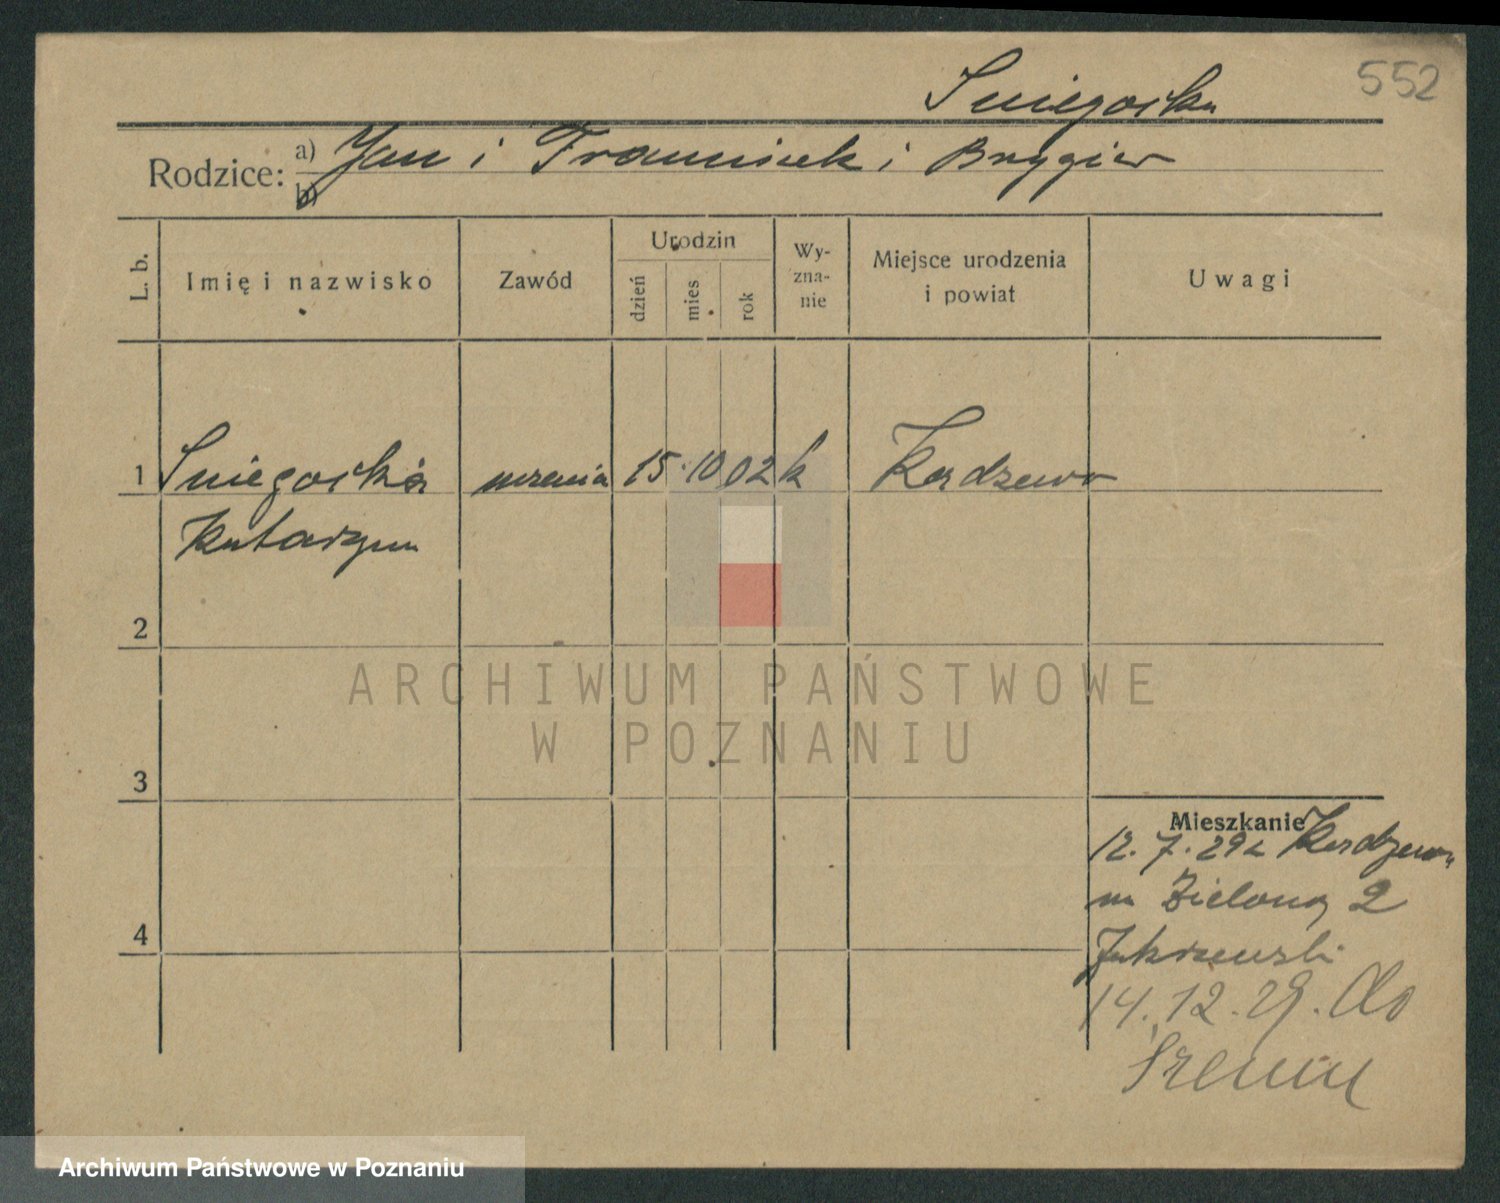 552
Sniegocka
Rodzice: a) Jan i Franciszek i Brygier
b)
L. b.
Imię i nazwisko
Zawód
Urodzin
dzień
mies
rok
Wy-
zna-
nie
Miejsce urodzenia
i powiat
Uwagi
1 Sniegocka uczenia 15. 10 02 k Kordzewo
Katarzyna
2
3
4
Mieszkanie
12. 7. 29 z Kordzewa
na Zieloną 2
14. 12. 29. do
Śremu
ARCHIWUM PAŃSTWOWE
W POZNANIU
Archiwum Państwowe w Poznaniu